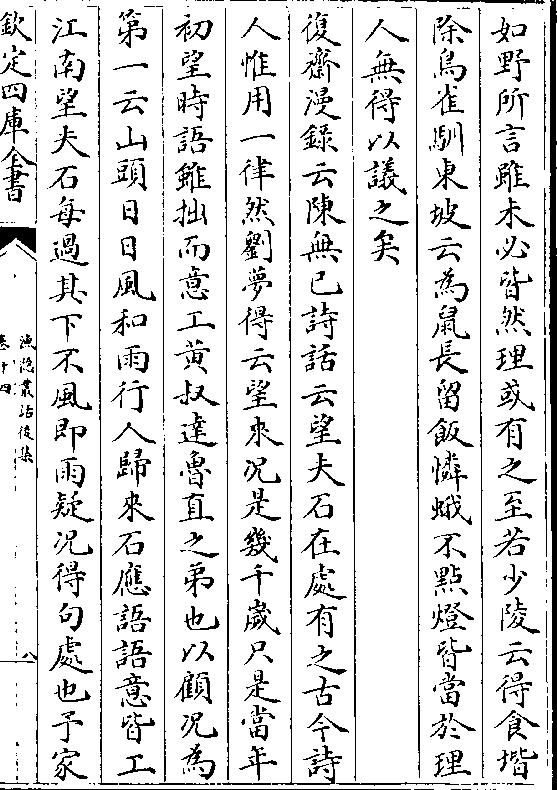 如野所言雖未必皆然理或有之至若少陵云得食堦
除鳥雀馴東坡云為鼠長留飯憐蛾不點燈皆當於理
人無得以議之矣
復齋漫錄云陳無已詩話云望夫石在處有之古今詩
人惟用一律然劉夢得云望來况是幾千歲只是當年
初望時語雖拙而意工黄叔達魯直之弟也以顧况為
第一云山頭日日風和雨行人歸來石應語語意皆工
江南望夫石每過其下不風即雨疑况得句處也予家
欽定四庫全書
漁隱叢話後集
卷十四
八